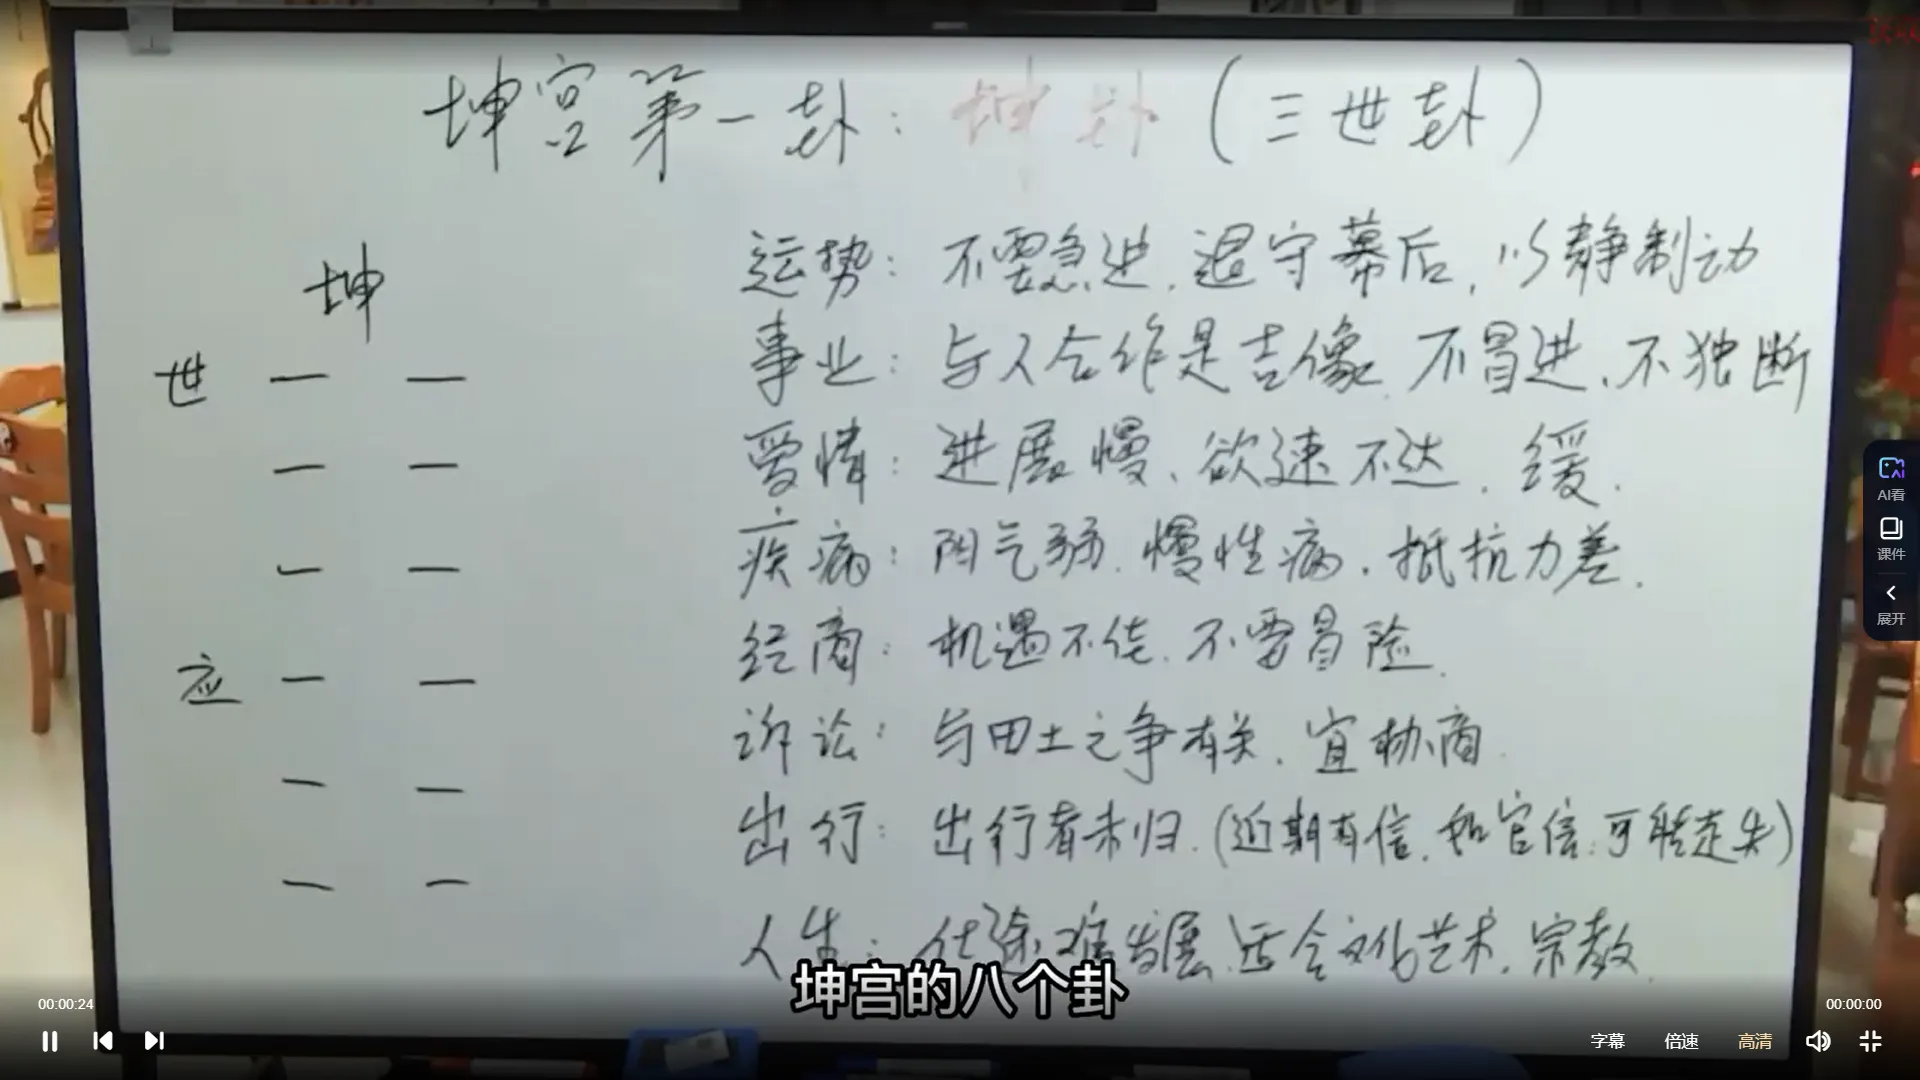 坤宫第一卦：坤卦（三世卦）
坤
世
应
运势：不要急进.退守幕后,以静制动
事业：与人合作是吉像.不冒进、不独断
爱情：进展慢、欲速不达.缓.
疾病：阴气弱.慢性病.抵抗力差.
经商：机遇不佳.不要冒险.
诉讼：与田土之争有关.宜协商.
出行：出行者未归.(近期有信.如官信.可能走失)
人生：仕途难发展.适合文化艺术.宗教.
坤宫的八个卦
AI看
课件
展开
00:00:24
00:00:00
字幕
倍速
高清